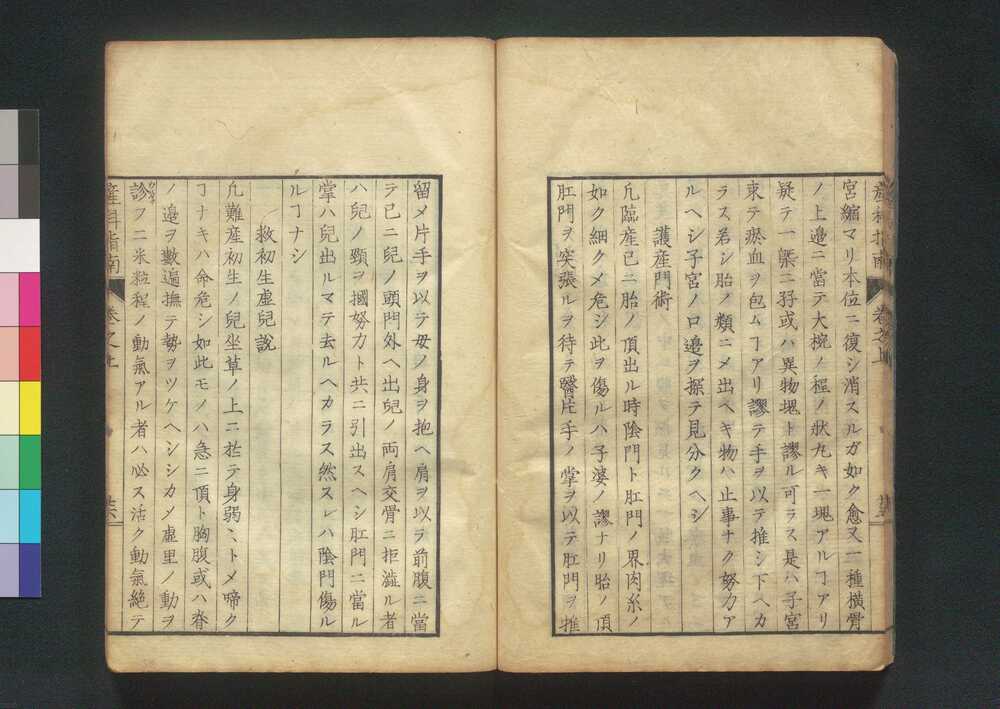 宮縮マリ本位ニ復シ消スルガ如ク愈又一種横骨
ノ上邉ニ當テ大椀ノ程ノ狀丸キ一塊アルヿアリ
疑テ一槩ニ孖或ハ異物塊ト謬ル可ラス是ハ子宮
束テ瘀血ヲ包ムヿアリ謬テ手ヲ以テ推シ下ヘカ
ラス若シ胎ノ類ニメ出ヘキ物ハ止事ナク努力ア
ルヘシ子宮ノ口邉ヲ探テ見分クヘシ
護産門術
凢臨産已ニ胎ノ頂出ル時陰門ト肛門ノ界肉糸ノ
如ク細クメ危シ此ヲ傷ルハ子婆ノ謬ナリ胎ノ頂
肛門ヲ突張ルヲ待テ醫片手ノ掌ヲ以テ肛門ヲ推
産科指南 卷之上
留メ片手ヲ以テ母ノ身ヲ抱ヘ肩ヲ以テ前腹ニ當
テ已ニ兒ノ頭門外ヘ出兒ノ両肩交骨ニ拒澁ル者
ハ兒ノ頸ヲ摑努力ト共ニ引出スヘシ肛門ニ當ル
掌ハ兒出ルマテ去ルヘカラス然スレハ陰門傷ル
ルヿナシ
救初生虚兒説
凢難産初生ノ兒坐草ノ上ニ於テ身弱ミトメ啼ク
ヿナキハ命危シ如此モノハ急ニ頂ト胸腹或ハ脊
ノ邉ヲ數遍撫テ勢ヲツケヘシシカメ虚里ノ動ヲ
診フニ米粒程ノ動氣アル者ハ必ス活ク動氣絶テ
産科指南 卷之上